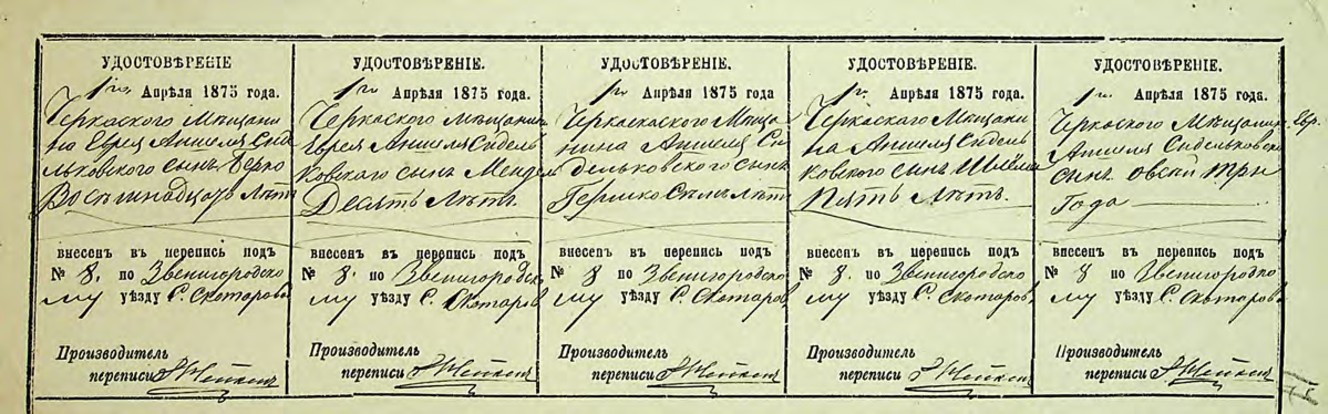 УДОСТОВѢРЕНІЕ
1го Апрѣля 1875 года.
Черкаского Мѣщани
на Еврея Аншеля Сид
льковского сынъ Берко
Восѣмнадцать Лѣтъ
внесенъ въ перепись подъ
№ 8. по Звенигородско
му уѣзду С. Скотарова
Производитель
переписи
УДОСТОВѢРЕНІЕ.
1го Апрѣля 1875 года.
Черкаского Мѣщанина
Еврея Аншеля Сидель
ковскаго сынъ Мендель
Десять Лѣтъ.
внесенъ въ перепись подъ
№ 8. по Звенигородско
му уѣзду С. Скотаров
Производитель
переписи
УДОСТОВѢРЕНІЕ.
1го Апрѣля 1875 года
Мѣща
нина Аншеля Си
дельковского сынъ
Гершко Семь лѣтъ
внесенъ въ перепись подъ
№ 8 по Звенигородско
му уѣзду С. Скотаров
Производитель
переписи
УДОСТОВѢРЕНІЕ.
1го Апрѣля 1875 года.
Черкаского Мѣщани
на Аншеля Сидель
ковского сынъ Шлёма
Пять Лѣтъ.
внесенъ въ перепись подъ
№ 8. по Звенигородско
му уѣзду С. Скотаров
Производитель
переписи
УДОСТОВѢРЕНІЕ.
1го Апрѣля 1875 года.
Черкаского Мѣщанин. Евр.
Аншеля Сидельковско
сынъ Овсѣй три
Года
внесенъ въ перепись подъ
№ 8 по Звенигородско
му уѣзду С. Скотаров
Производитель
переписи